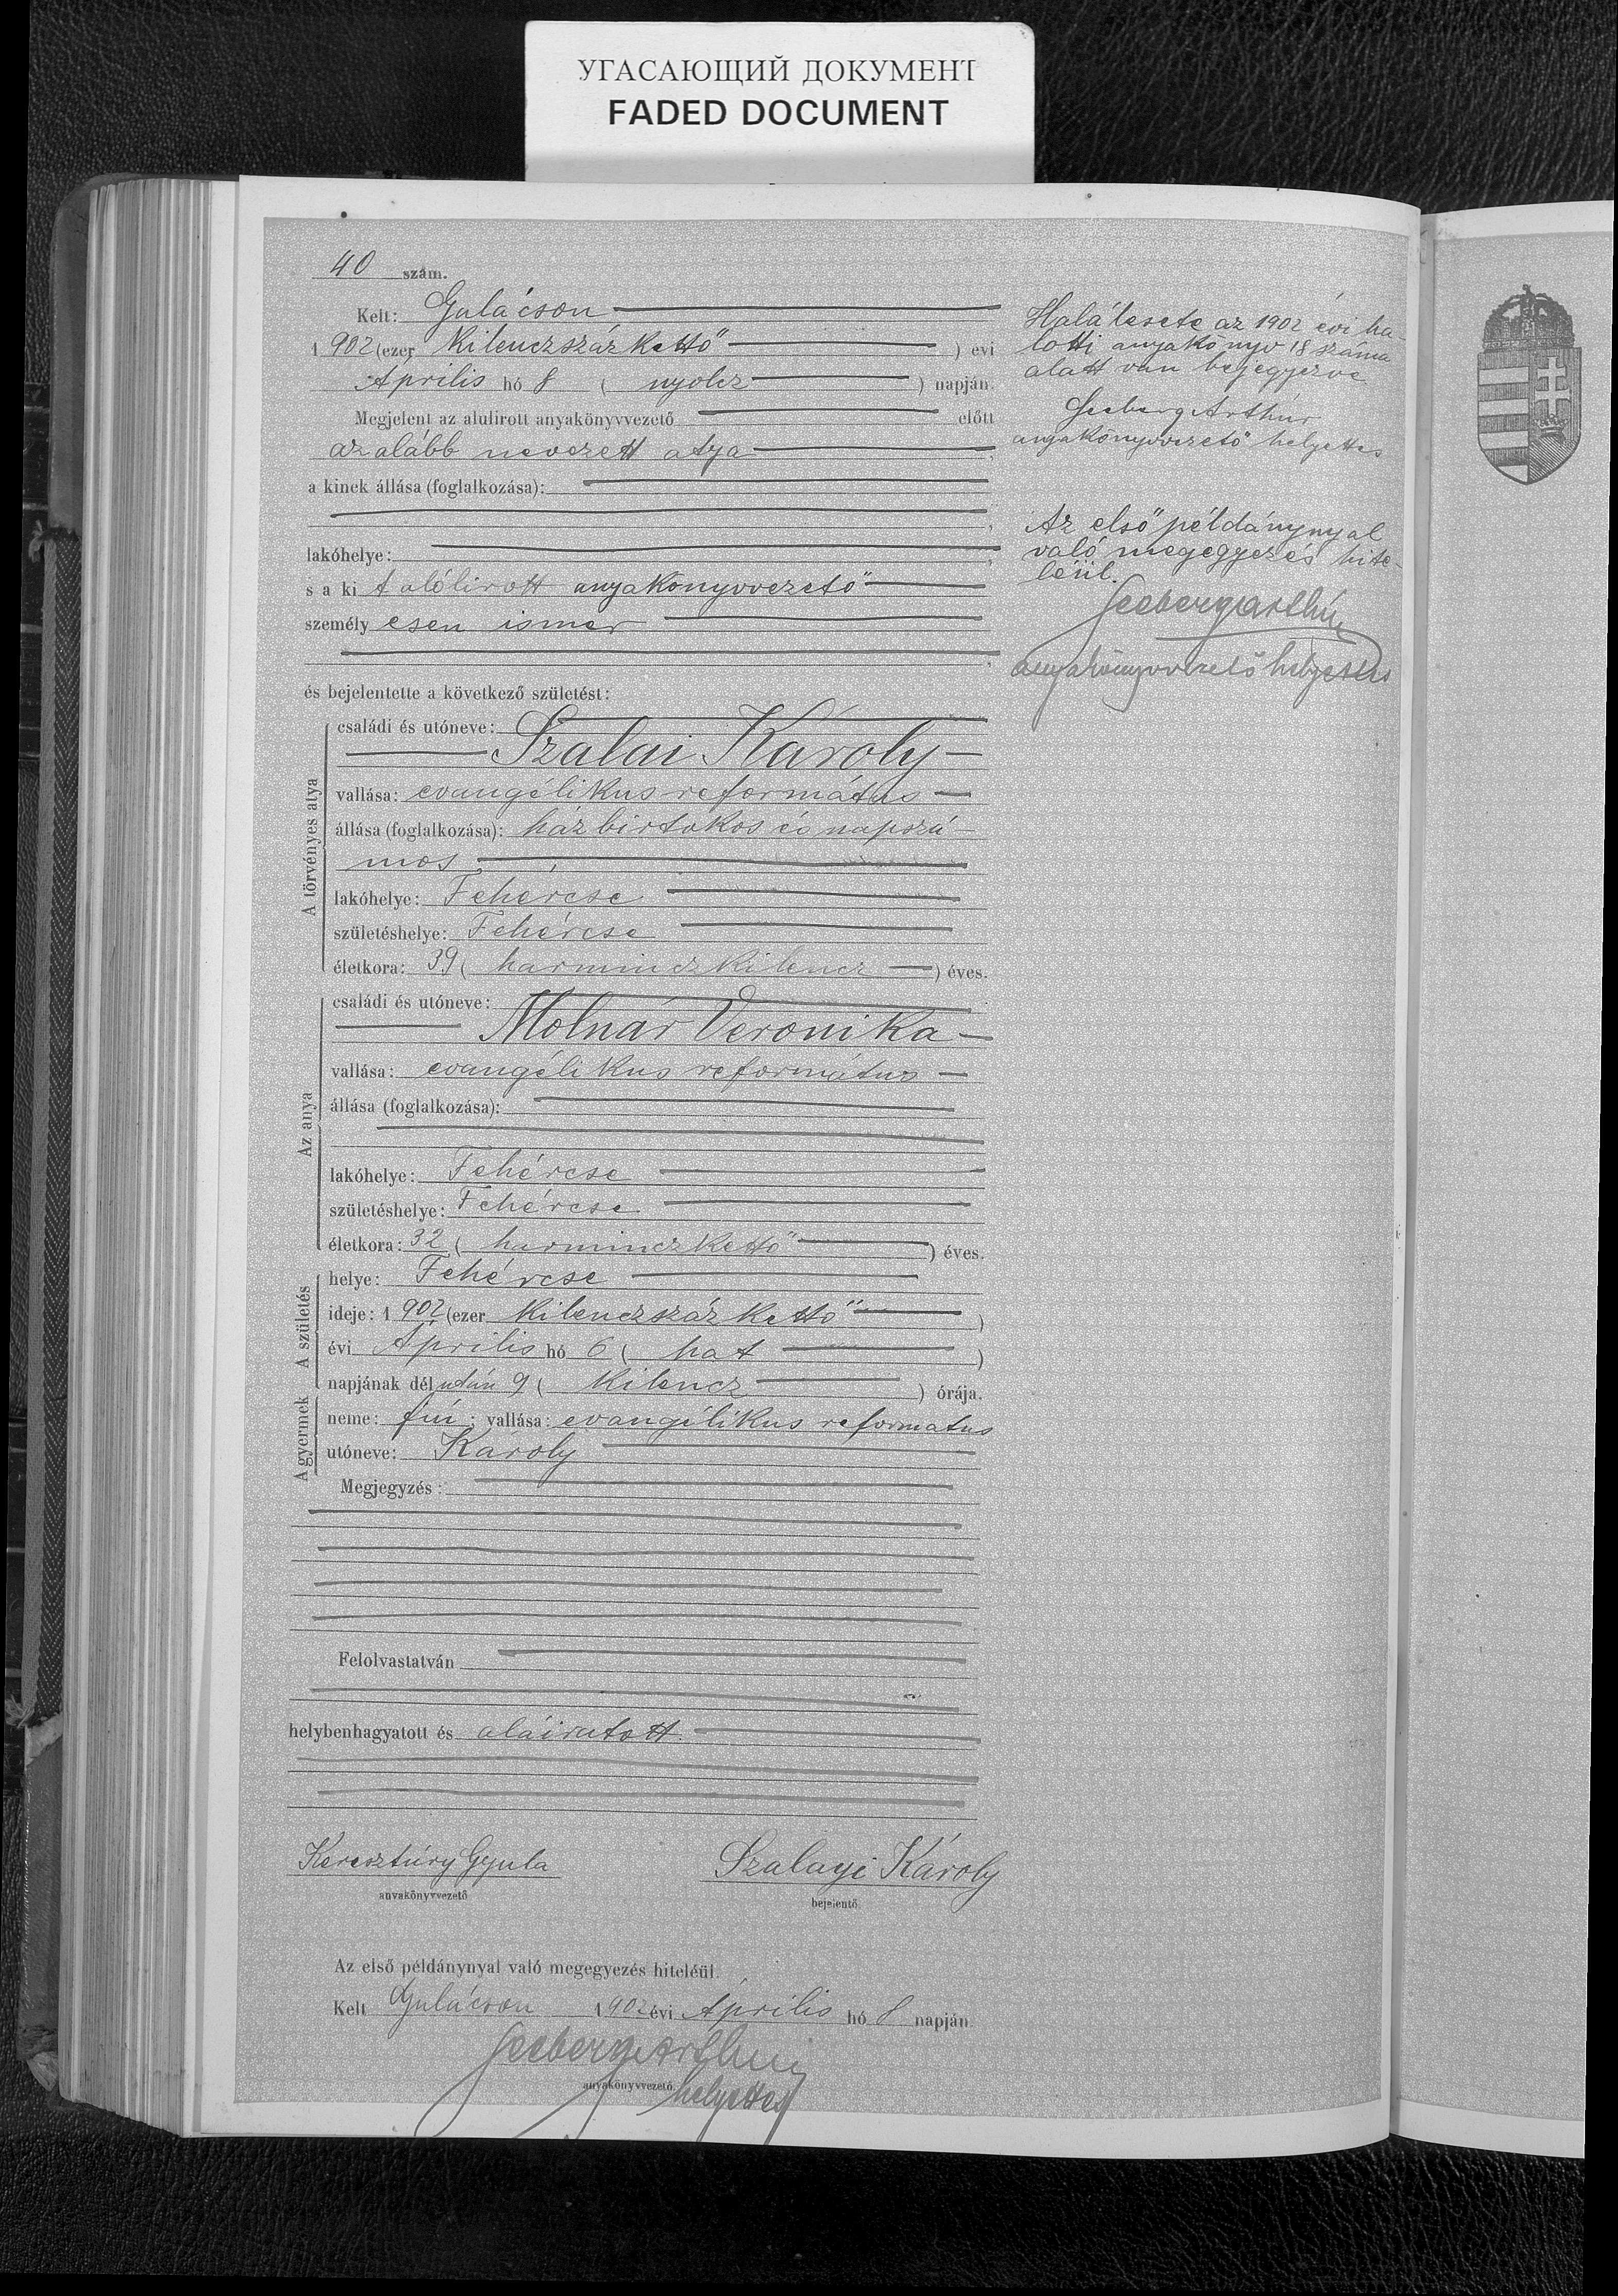 УГАСАЮЩИЙ ДОКУМЕНТ
FADED DOCUMENT
40 szám.
Kelt: Gulácson
1902 (ezer kilenczszáz kettő) évi
Április hó 8 (nyolcz) napján.
Megjelent az alulirott anyakönyvvezető előtt
az alább nevezett atya,
a kinek állása (foglalkozása):
lakóhelye:
s a kit alólirott anyakönyvvezető
személyesen ismer
és bejelentette a következő születést:
A törvényes atya
családi és utóneve:
Szalai Károly
vallása: evangélikus református
állása (foglalkozása): házbirtokos és napszá-
mos
lakóhelye: Fehércse
születéshelye: Fehércse
életkora: 39 (harminczkilencz) éves.
Az anya
családi és utóneve:
Molnár Veronika
vallása: evangélikus református
állása (foglalkozása):
lakóhelye: Fehércse
születéshelye: Fehércse
életkora: 32 (harminczkettő) éves.
A születés
helye: Fehércse
ideje: 1902 (ezer kilenczszáz kettő)
évi Április hó 6 (hat)
napjának délután 9 (kilencz) órája.
A gyermek
neme: fiú; vallása: evangélikus reformatus
utóneve: Károly
Megjegyzés:
Felolvastatván
helybenhagyatott és aláiratott.
Keresztúry Gyula
anyakönyvvezető
Szalayi Károly
bejelentő
Az első példánynyal való megegyezés hiteléül.
Kelt Gulácson 1902 évi Április hó 8 napján
Seeberg Arthur
anyakönyvvezető helyettes
Halálesete az 1902 évi ha-
lotti anyakönyv 18 száma
alatt van bejegyezve
Seeberg Arthúr
anyakönyvvezető helyettes
Az első példánynyal
való megegyezés hite-
léül.
Seeberg Arthúr
anyakönyvvezető helyettes